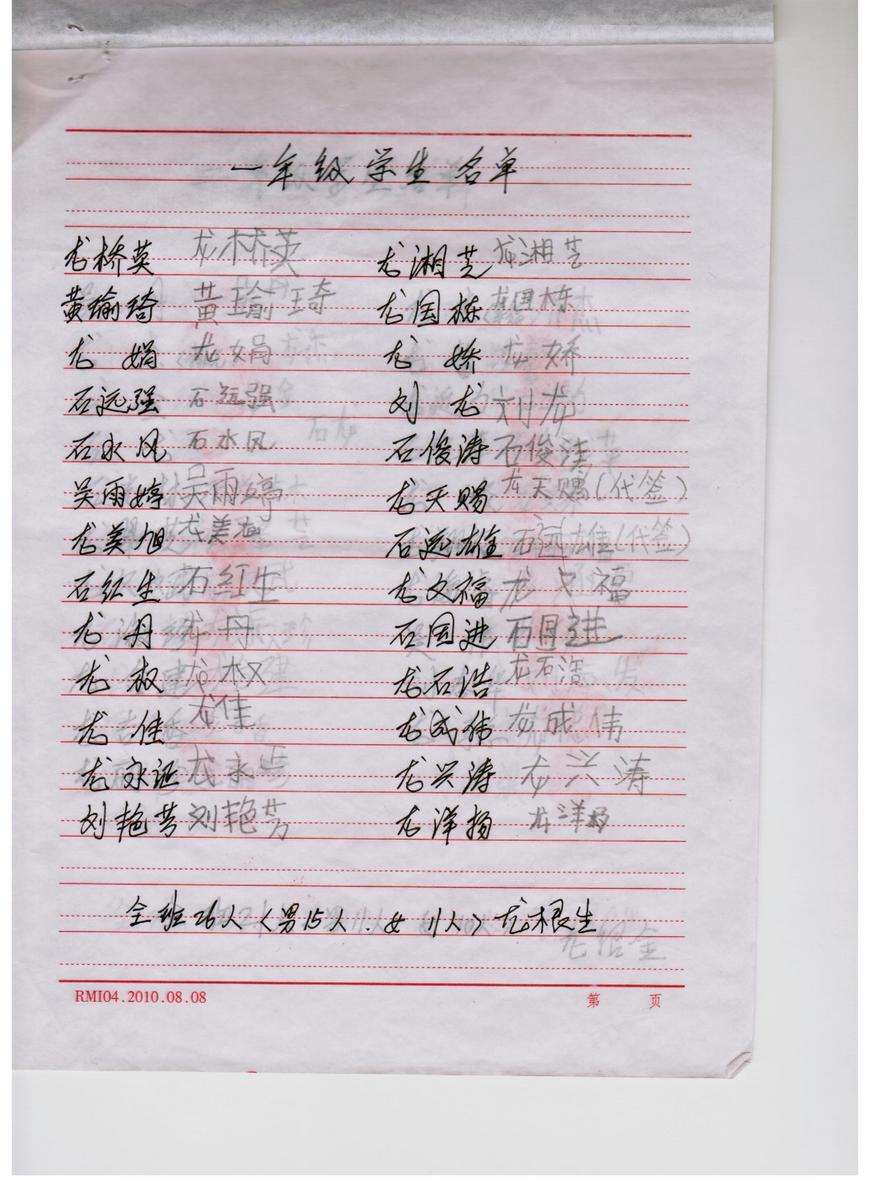 一年级学生名单
龙桥英 龙桥英 龙湘芝 龙湘芝
黄瑜琦 黄瑜琦 龙国栋 龙国栋
龙娟 龙娟 龙娇 龙娇
石远强 石远强 刘龙 刘龙
石永风 石水风 石俊涛 石俊涛
吴雨婷 吴雨婷 龙天赐 龙天赐(代签)
龙美旭 龙美旭 石远雄 石远雄(代签)
石红生 石红生 龙文福 龙文福
龙丹 龙丹 石国进 石国进
龙权 龙权 龙石浩 龙石浩
龙佳 龙佳 龙成伟 龙成伟
龙永证 龙永 龙兴涛 龙兴涛
刘艳芳 刘艳芳 龙洋扬 龙洋扬
全班26人<男15人.女11人>龙根生
RMI04.2010.08.08 第 页